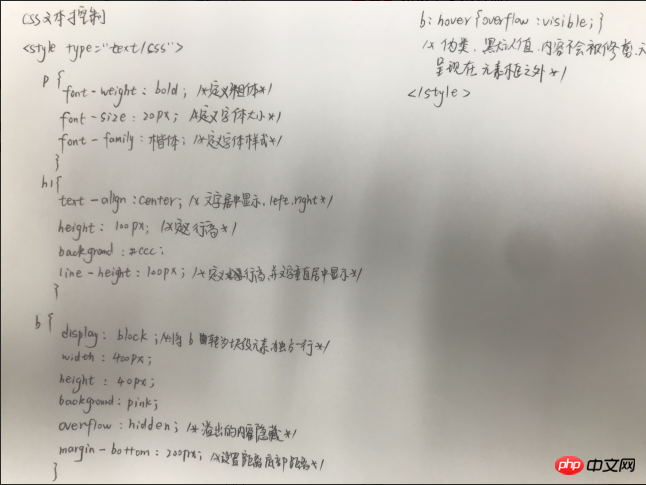 CSS文本控制
<style type="text/css">
p {
font-weight: bold; /*定义粗体*/
font-size: 20px; /*定义字体大小*/
font-family: 楷体; /*定义字体样式*/
}
h1{
text-align:center; /*文字居中显示,left.right*/
height: 100px; /*定义行高*/
background:#ccc;
line-height:100px; /*定义行高,并文字垂直居中显示*/
}
b {
display: block; /*将b转为块段元素,独占一行*/
width: 400px;
height: 40px;
background: pink;
overflow: hidden; /*溢出的内容隐藏*/
margin-bottom: 200px; /*设置距离底部距离*/
}
b:hover{overflow:visible;}
/*伪类,默认值.内容不会被修剪,
呈现在元素框之外*/
</style>
php中文网